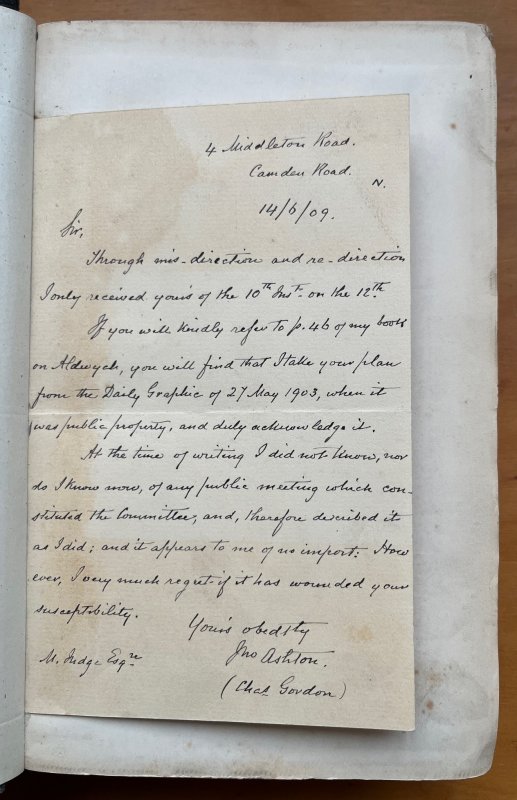 4 Middleton Road.
Camden Road.
N.
14/6/09.
Sir,
Through mis-direction and re-direction
I only received your's of the 10th Inst. on the 12th.
If you will kindly refer to p. 46 of my book
on Aldwych, you will find that I take your plan
from the Daily Graphic of 27 May 1903, when it
was public property, and duly acknowledge it.
At the time of writing I did not know, nor
do I know now, of any public meeting which con-
stituted the Committee, and, therefore described it
as I did; and it appears to me of no import: How
ever, I very much regret if it has wounded your
susceptibility.
Your's obedtly
Jno Ashton.
M. Judge Esqre
(Chas Gordon)